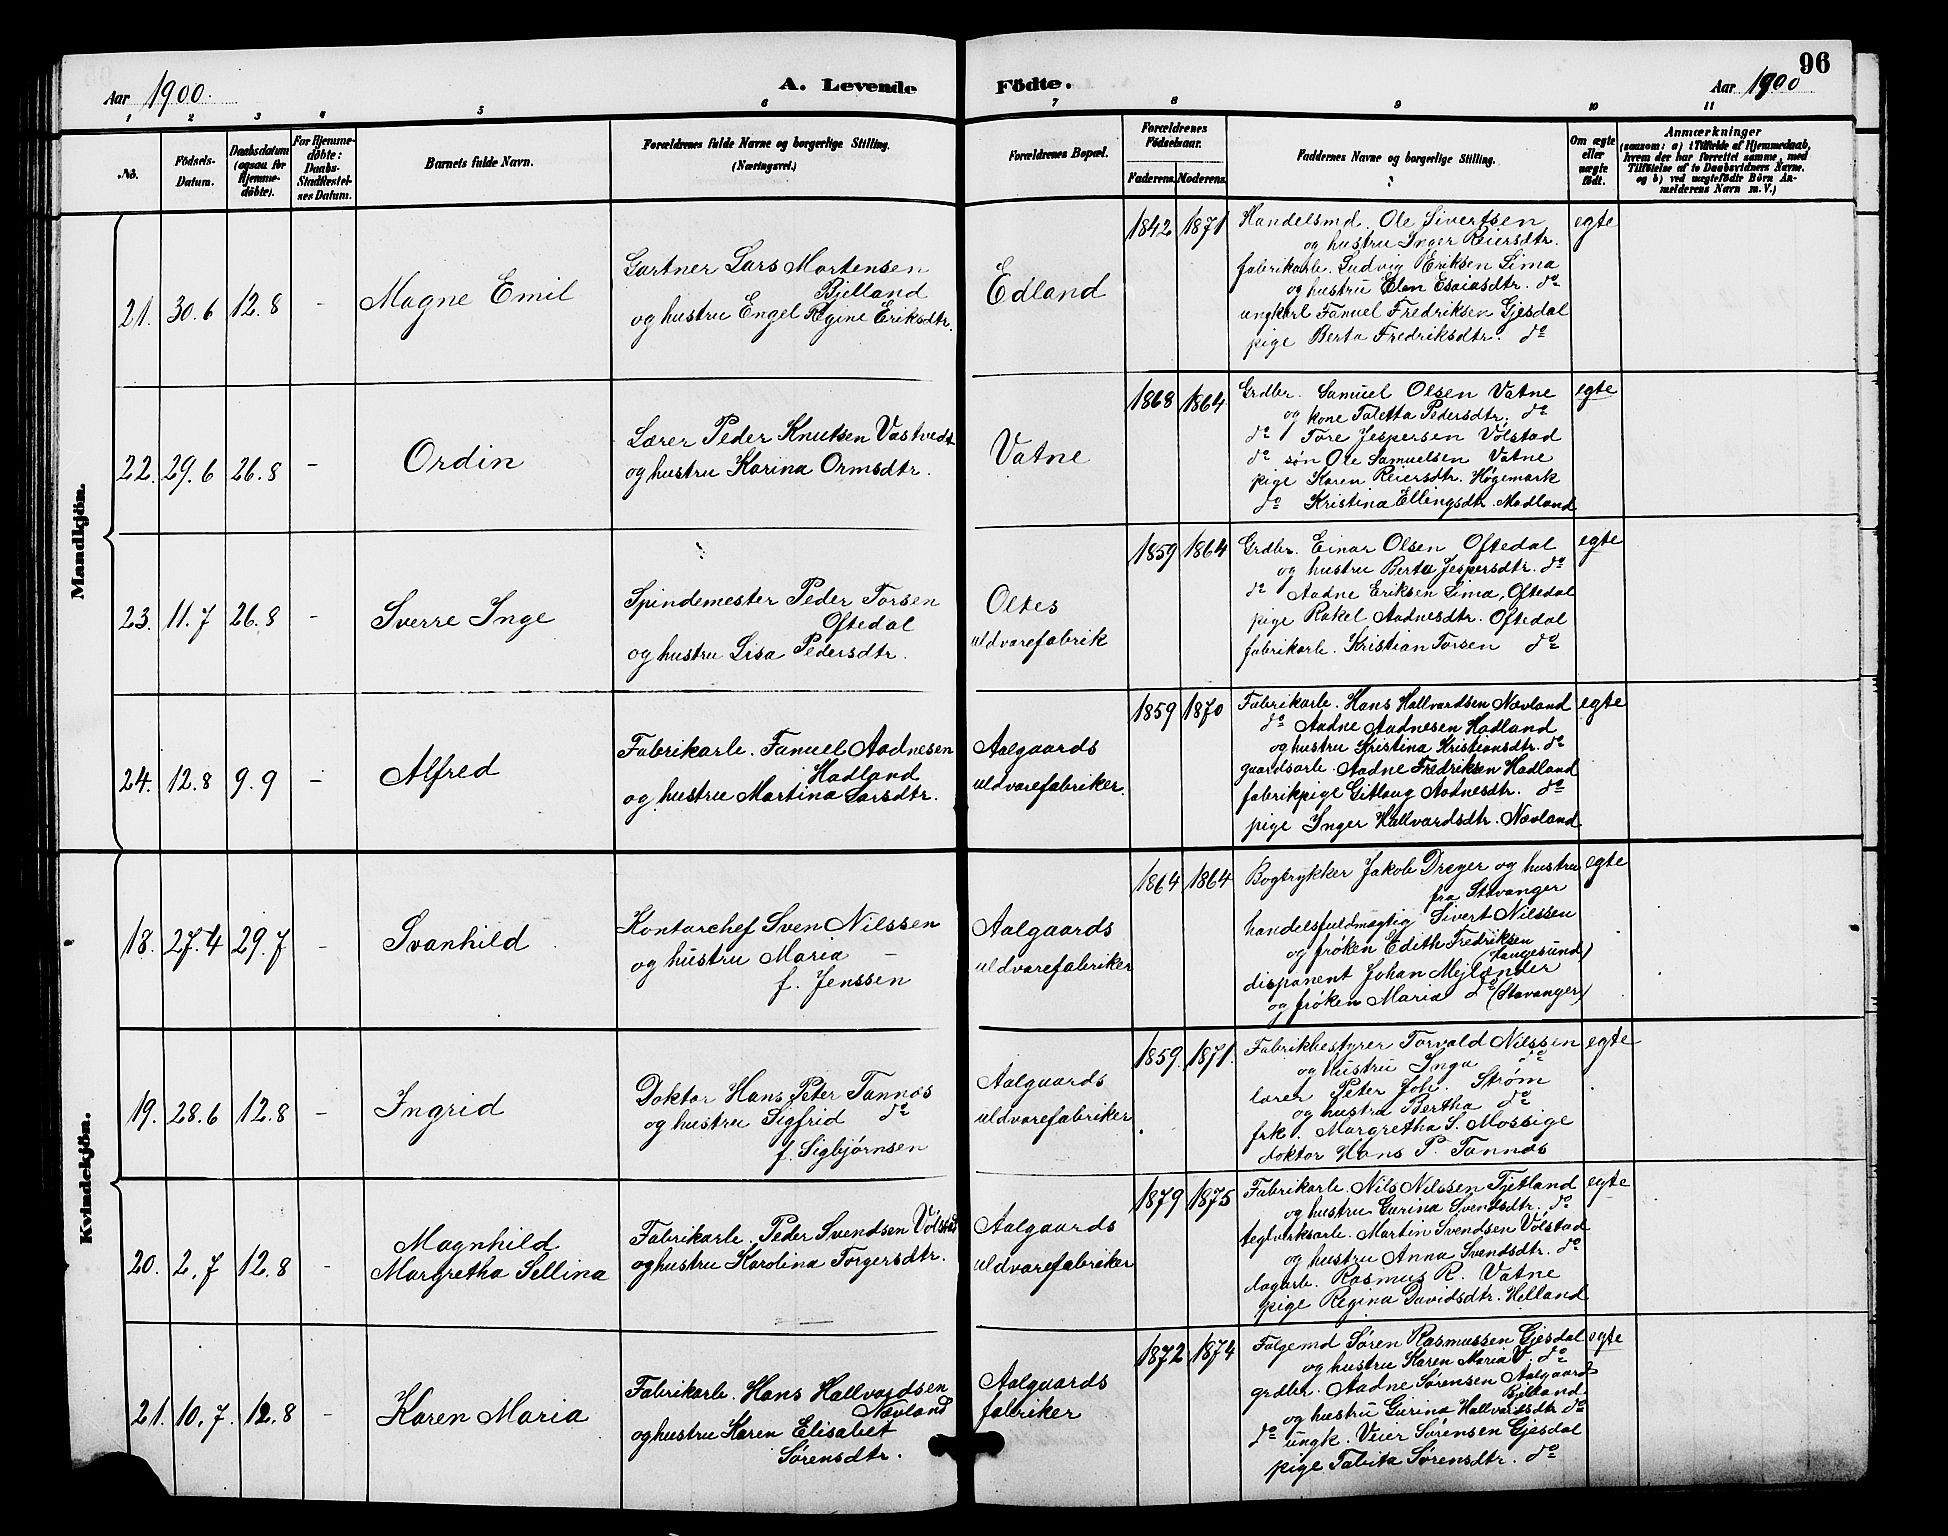 96
Aar 1900. A. Levende Födte. Aar 1900
1 2 3 4 5 6 7 8 9 10 11
No. Födsels-Datum. Daabsdatum (ogsaa for Hjemme-döbte). For Hjemme-döbte: Daabs-Stadfæstel-ses Datum. Barnets fulde Navn. Forældrenes fulde Navne og borgerlige Stilling. (Næringsvei.) Forældrenes Bopæl. Forældrenes Födselsaar. Faderens. Moderens. Faddernes Navne og borgerlige Stilling. Om ægte eller uægte födt. Anmærkninger (saasom: a) i Tilfælde af Hjemmedaab, hvem der har forrettet samme, med Tilföielse af to Daabsvidners Navne, og b) ved uægtefödte Börn An-melderens Navn m. V.)
Mandkjön.
21. 30.6 12.8 - Magne Emil
Gartner Lars Mortensen
Bjelland
og hustru Engel Regine Eriksdtr.
Edland
1842 1871
Handelsmd. Ole Sivertsen
og hustru Inger Reiersdtr.
fabrikarb. Ludvig Eriksen Lima
og hustru Elen Esaiasdtr. do
ungkarl Fanuel Fredriksen Gjesdal
pige Berta Fredriksdtr. do
egte
22. 29.6 26.8 - Ordin
Lærer Peder Knutsen Vastvedt
og hustru Karina Ormsdtr.
Vatne
1868 1864
Grdbr. Samuel Olsen Vatne
og kone Taletta Pedersdtr. do
do Tore Jespersen Vølstad
do søn Ole Samuelsen Vatne
pige Karen Reiersdtr. Høgemark
do Kristina Ellingsdtr. Madland
egte
23. 11.7 26.8 - Sverre Inge
Spindemester Peder Torsen
Oftedal
og hustru Lisa Pedersdtr.
Oltes
uldvarefabrik
1859 1864
Grdbr. Einar Olsen Oftedal
og hustru Berta Jespersdtr. do
do Aadne Eriksen Lima, Oftedal
pige Rakel Aadnesdtr. Oftedal
fabrikarb. Kristian Torsen do
egte
24. 12.8 9.9 - Alfred
Fabrikarb. Fanuel Aadnesen
Hadland
og hustru Martina Larsdtr.
Aalgaards
uldvarefabriker.
1859 1870
Fabrikarb. Hans Hallvardsen Nævland
do Aadne Aadnesen Hadland
og hustru Kristina Kristiansdtr. do
gaardsarb. Aadne Fredriksen Hadland
fabrikpige Gitlaug Aadnesdtr. do
pige Inger Hallvardsdtr. Nævland
egte
Kvindekjön.
18. 27.4 29.7 - Svanhild
Kontorchef Sven Nilssen
og hustru Maria -
f. Jenssen
Aalgaards
uldvarefabriker
1864 1864
Bogtrykker Jakob Dreyer og hustru
fra Stavanger
handelsfuldmægtig Sivert Nilssen
og frøken Edith Fredriksen
(Haugesund)
disponent Johan Mejlænder
og frøken Maria do (Stavanger)
egte
19. 28.6 12.8 - Ingrid
Doktor Hans Peter Tannæs
og hustru Sigfrid do
f. Sigbjørnsen
Aalgaards
uldvarefabriker
1859. 1871.
Fabrikbestyrer Torvald Nilssen
og hustru Inga do
lærer Peter Joh. Strøm
og hustru Bertha do
frk. Margretha S. Mossige
doktor Hans P. Tannæs
egte
20. 2.7 12.8 - Magnhild
Margretha Sellina
Fabrikarb. Peder Svendsen Vølstad
og hustru Karolina Torgersdtr.
Aalgaards
uldvarefabriker
1879 1875
Fabrikarb. Nils Nilssen Tjetland
og hustru Gurina Svendsdtr. do
teglverksarb. Martin Svendsen Vølstad
og hustru Anna Svendsdtr. do
dagarb. Rasmus R. Vatne
pige Regina Davidsdtr. Helland
egte
21. 10.7. 12.8 - Karen Maria
Fabrikarb. Hans Hallvardsen
Nævland
og hustru Karen Elisabet
Sørensdtr.
Aalgaards
fabriker
1872 1874
Følgemd Søren Rasmussen Gjesdal
og hustru Karen Maria V. do
grdbr. Aadne Sørensen Aalgaard
Bjelland
og hustru Gurina Hallvardsdtr do
do ungk. Veier Sørensen Gjesdal
pige Tabita Sørensdtr. do
egte